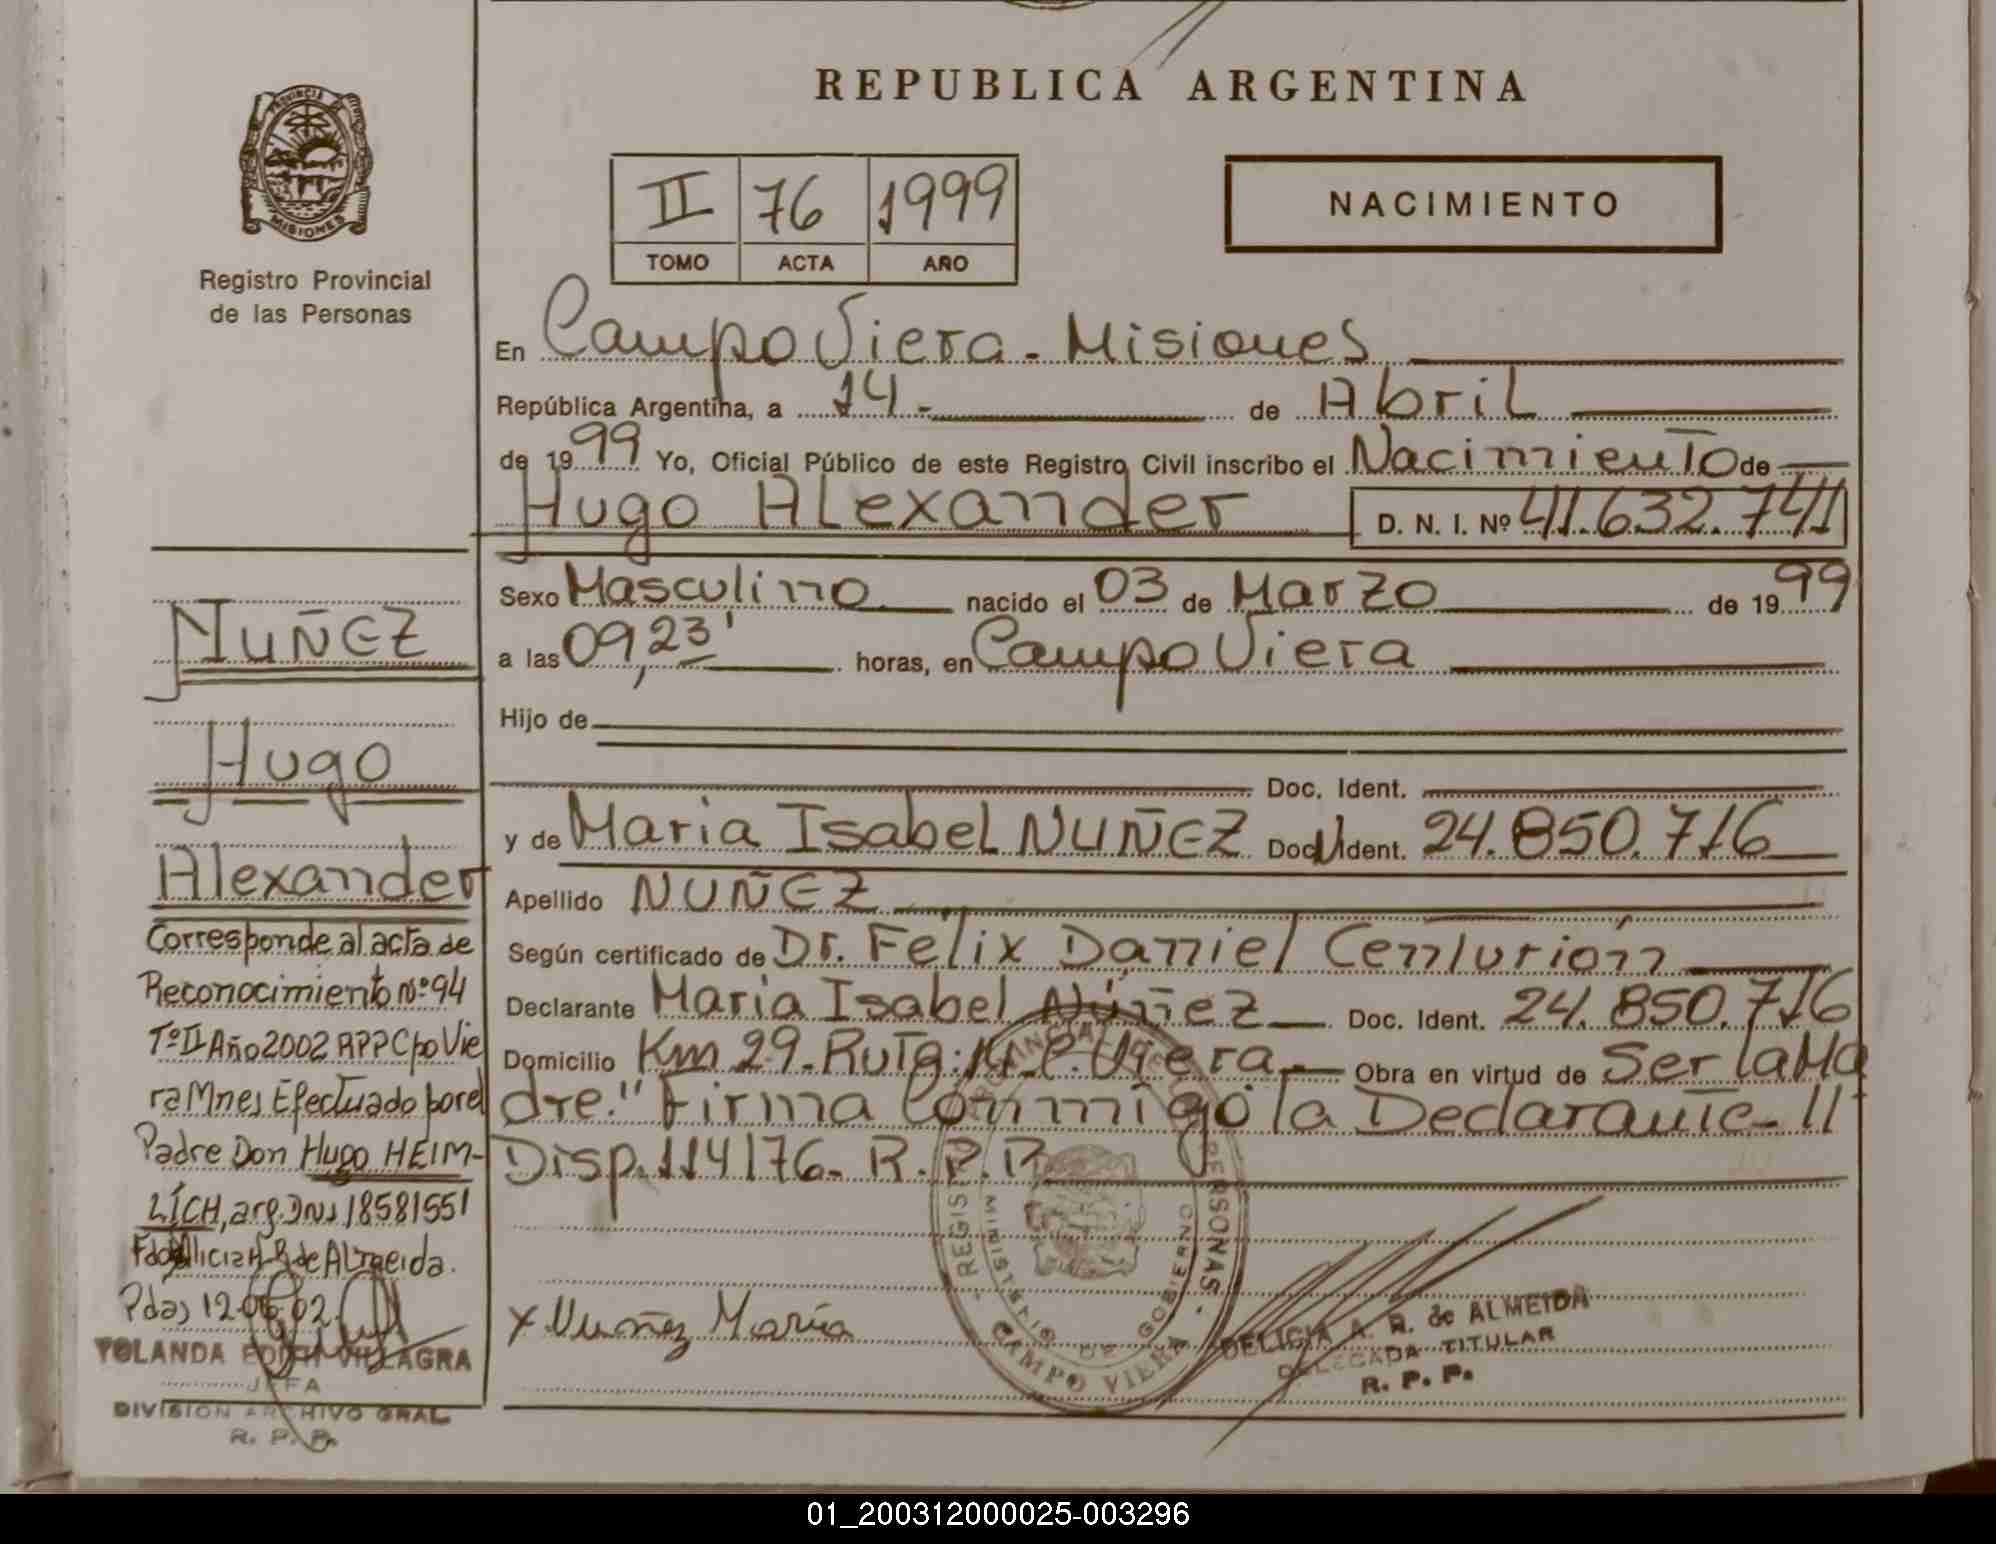 REPUBLICA ARGENTINA
PROVINCIA DE
MISIONES
Registro Provincial
de las Personas
II 76 1999
TOMO ACTA AÑO
NACIMIENTO
En Campo Viera - Misiones
República Argentina, a 14.- de Abril
de 1999 Yo, Oficial Público de este Registro Civil inscribo el Nacimiento de
Hugo Alexander D. N. I. Nº 41.632.741
Sexo Masculino nacido el 03 de Marzo de 1999
a las 09,23' horas, en Campo Viera
Hijo de
Doc. Ident.
y de Maria Isabel NUÑEZ Doc. Ident. 24.850.716
Apellido NUÑEZ
Según certificado de Dr. Felix Daniel Centurión
Declarante Maria Isabel Núñez Doc. Ident. 24.850.716
Domicilio Km 29-Ruta:14-C.Viera.- Obra en virtud de Ser la Ma
dre." Firma Conmigo la Declarante- II-
Disp. 114176- R.P.P.
NUÑEZ
Hugo
Alexander
Corresponde al acta de
Reconocimiento Nº 94
Tº II Año 2002 RPP Cpo Vie
ra Mnes Efectuado por el
Padre Don Hugo HEIM-
LÍCH, arg. DNI 18581551
de Almeida.
Pdas 12-06-02.
YOLANDA EDITH VILLAGRA
JEFA
DIVISION ARCHIVO GRAL
R. P. P.
x Nuñez María
MINISTERIO DE GOBIERNO
CAMPO VIERA
DELICIA A. R. de ALMEIDA
DELEGADA TITULAR
R. P. P.
01_200312000025-003296